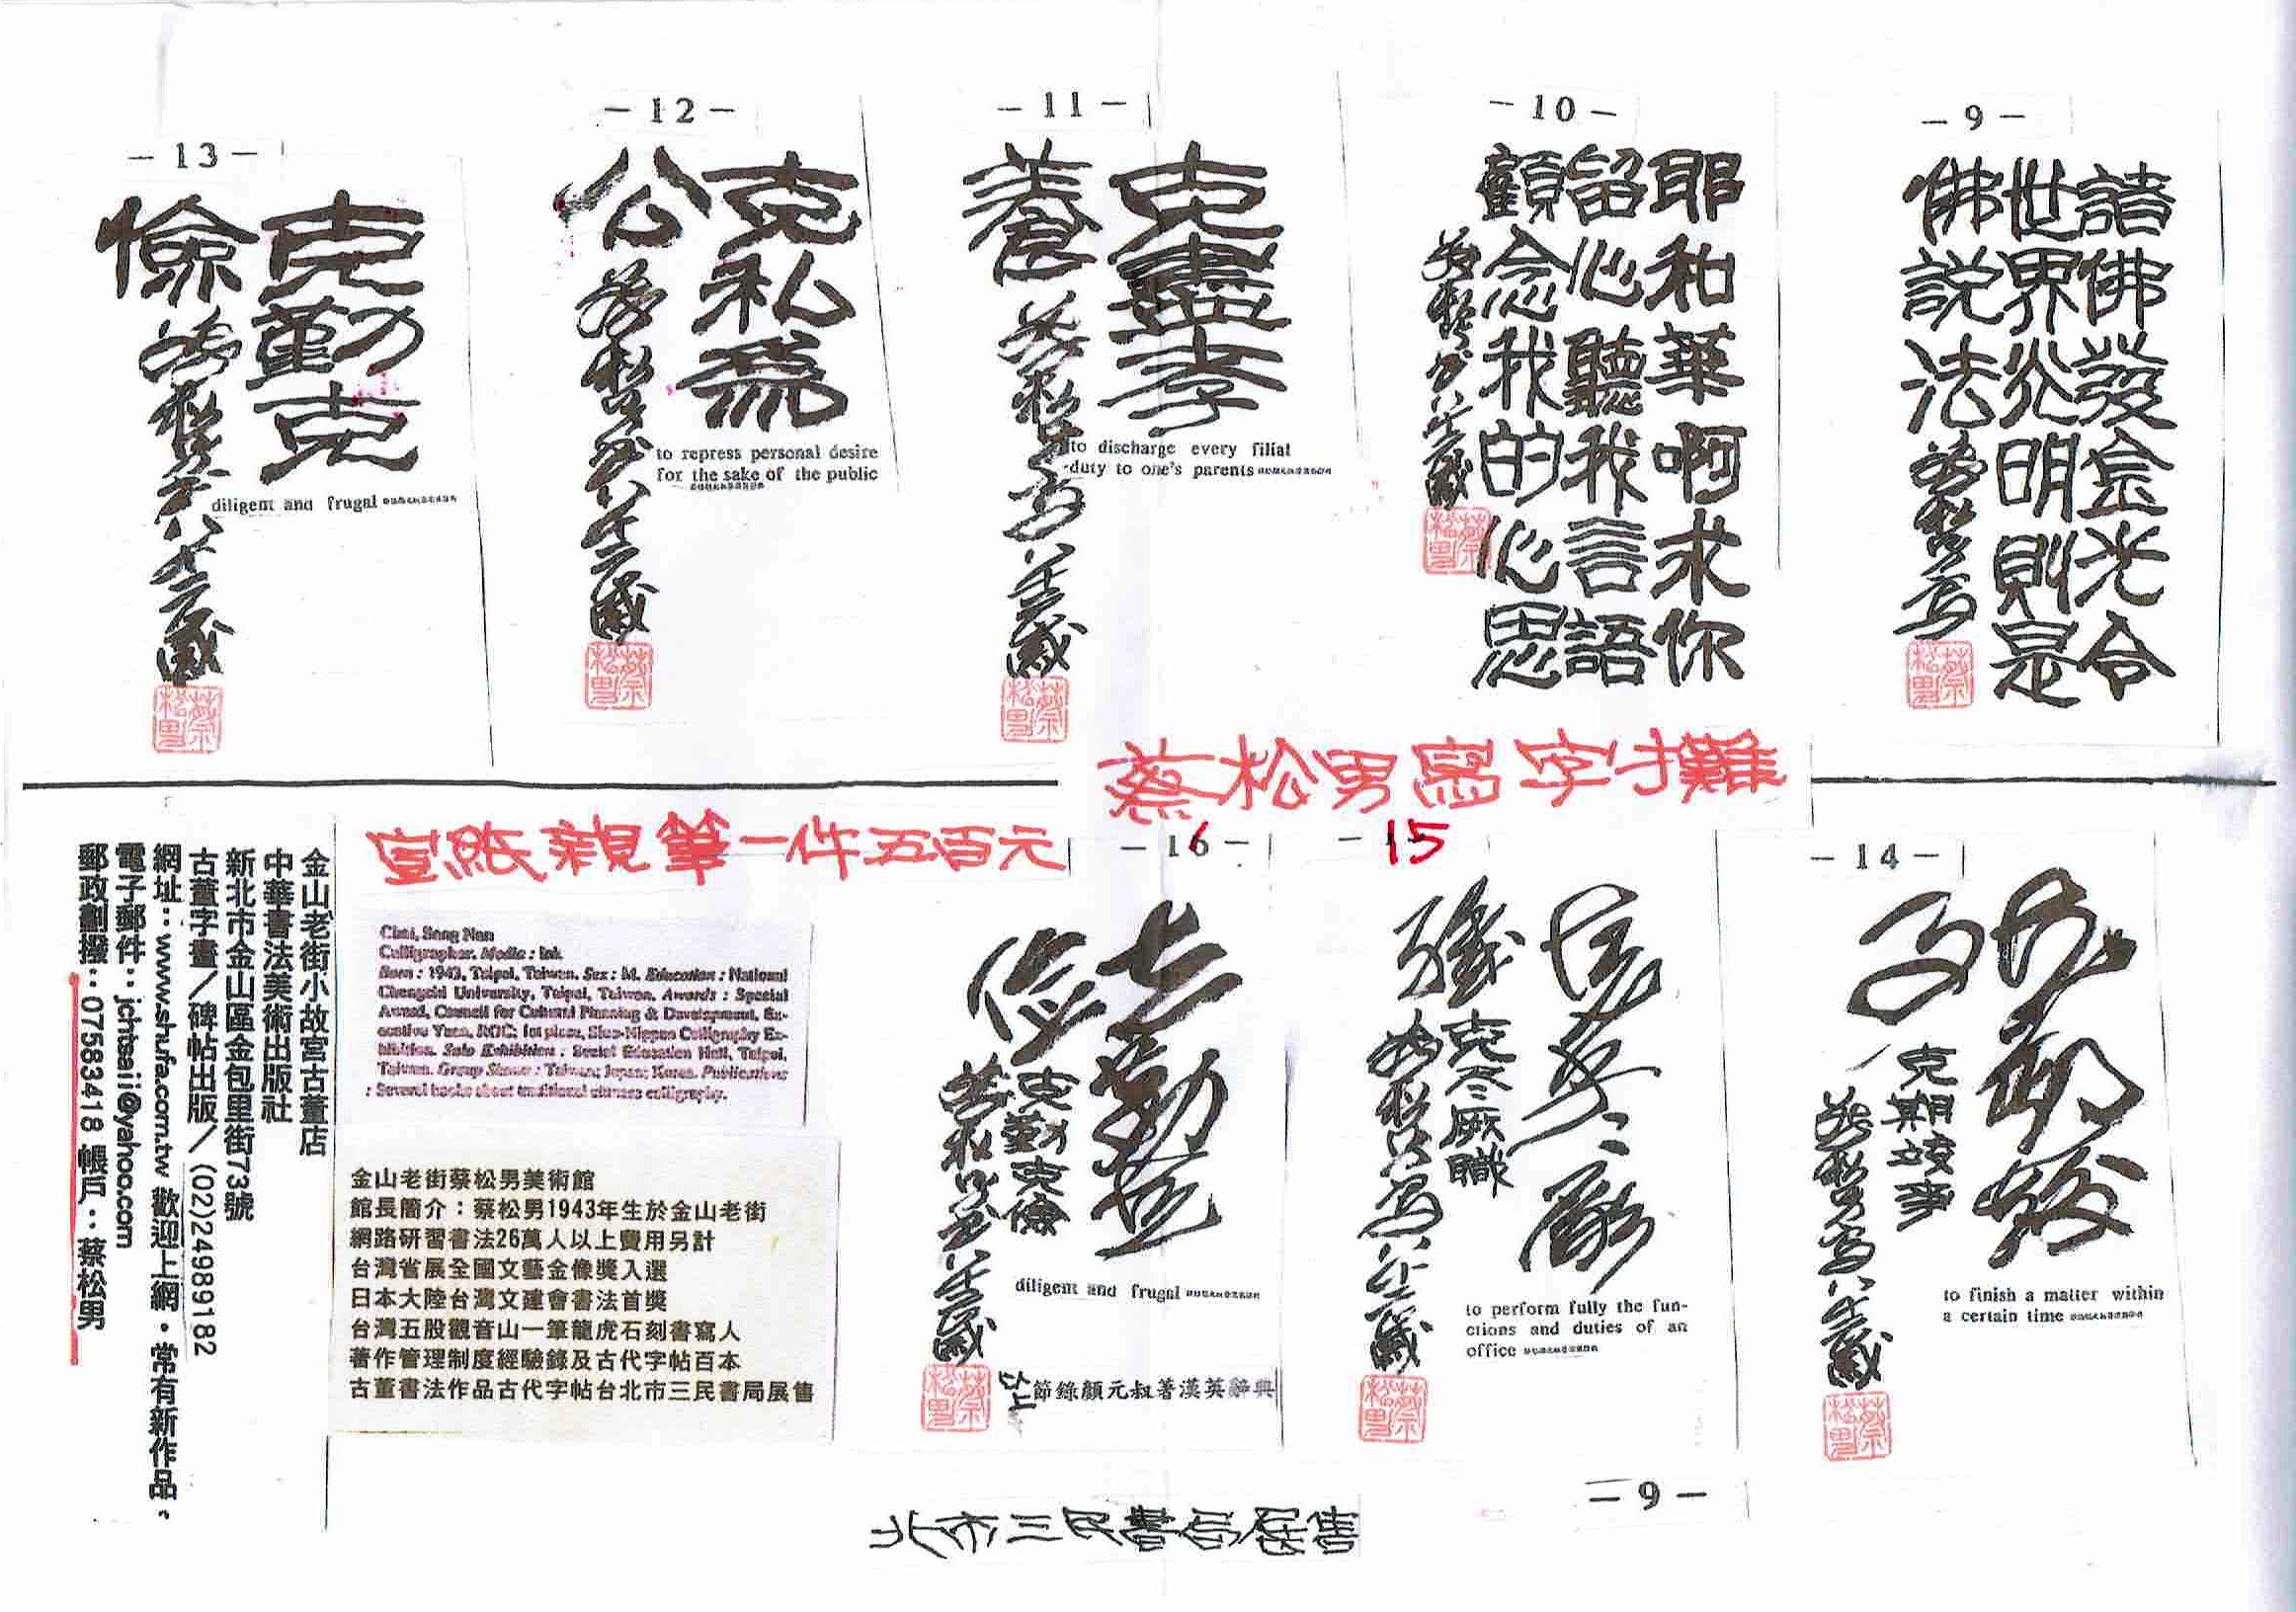 －9－
諸佛發金光令
世界光明則是
佛說法
蔡松男寫
蔡松男
－10－
耶和華啊求你
留心聽我言語
顧念我的心思
蔡松男書八十二歲
蔡松男
－11－
克盡孝
養
蔡松男寫八十二歲
蔡松男
to discharge every filial
duty to one's parents
－12－
克私為
公
蔡松男書八十二歲
蔡松男
to repress personal desire
for the sake of the public
－13－
克勤克
儉
蔡松男書八十二歲
蔡松男
diligent and frugal
蔡松男寫字攤
－14－
克期竣
事
克期竣事
蔡松男寫八十二歲
蔡松男
to finish a matter within
a certain time
－15
克尽厥
職
克尽厥職
蔡松男寫八十二歲
蔡松男
to perform fully the fun-
ctions and duties of an
office
－16－
克勤克
儉
克勤克儉
蔡松男書八十二歲
蔡松男
diligent and frugal
以上
節錄顏元叔著漢英辭典
宣紙親筆一件五百元
Chai, Song Nan
Calligrapher. Media : Ink
Born : 1943, Taipei, Taiwan. Sex : M. Education : National
Chengchi University, Taipei, Taiwan. Awards : Special
Award, Council for Cultural Planning & Development, Ex-
ecutive Yuan, ROC; 1st place, Sino-Nippon Calligraphy Ex-
hibition. Solo Exhibition : Social Education Hall, Taipei,
Taiwan. Group Shows : Taiwan; Japan; Korea. Publications
: Several books about traditional chinese calligraphy.
金山老街蔡松男美術館
館長簡介：蔡松男1943年生於金山老街
網路研習書法26萬人以上費用另計
台灣省展全國文藝金像獎入選
日本大陸台灣文建會書法首獎
台灣五股觀音山一筆龍虎石刻書寫人
著作管理制度經驗錄及古代字帖百本
古董書法作品古代字帖台北市三民書局展售
金山老街小故宮古董店
中華書法美術出版社
新北市金山區金包里街73號
古董字畫／碑帖出版／(02)24989182
網址：www.shufa.com.tw 歡迎上網，常有新作品。
電子郵件：jchtsaii@yahoo.com
郵政劃撥：07583418 帳戶：蔡松男
－9－
北市三民書局展售